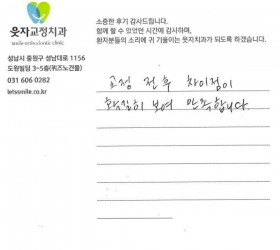 웃자교정치과
smile orthodontic clinic
성남시 중원구 성남대로 1156
도원빌딩 3~5층(퀴즈노건물)
031 606 0282
letssmile.co.kr
소중한 후기 감사드립니다.
함께 할 수 있었던 시간에 감사하며,
환자분들의 소리에 귀 기울이는 웃자치과가 되도록 하겠습니다.
교정 전후 차이점이
확실히 보여 만족합니다.